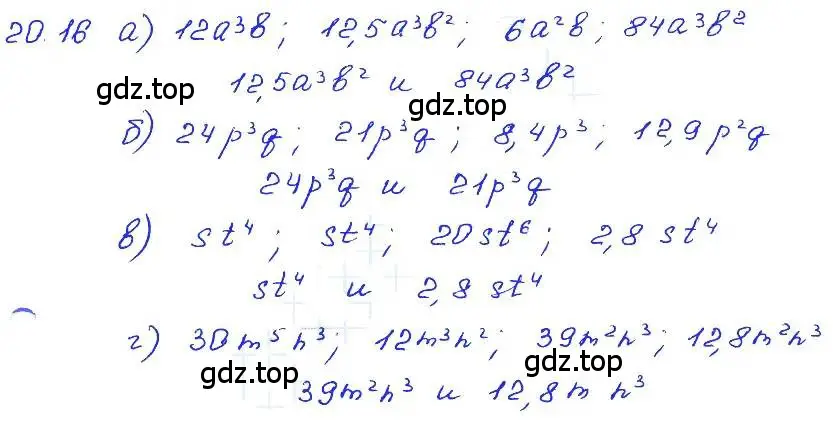 20.16 а) 12a³b; 12,5a³b²; 6a²b; 84a³b²
12,5a³b² и 84a³b²
gdz.top gdz.top
б) 24p³q; 21p³q; 8,4p³; 12,9p²q
24p³q и 21p³q
в) st⁴; st⁴; 20st⁶; 2,8 st⁴
st⁴ и 2,8 st⁴
г) 30m⁵n³; 12m³n²; 39m²n³; 12,8m²n³
gdz.top gdz.top
39m²n³ и 12,8m n³